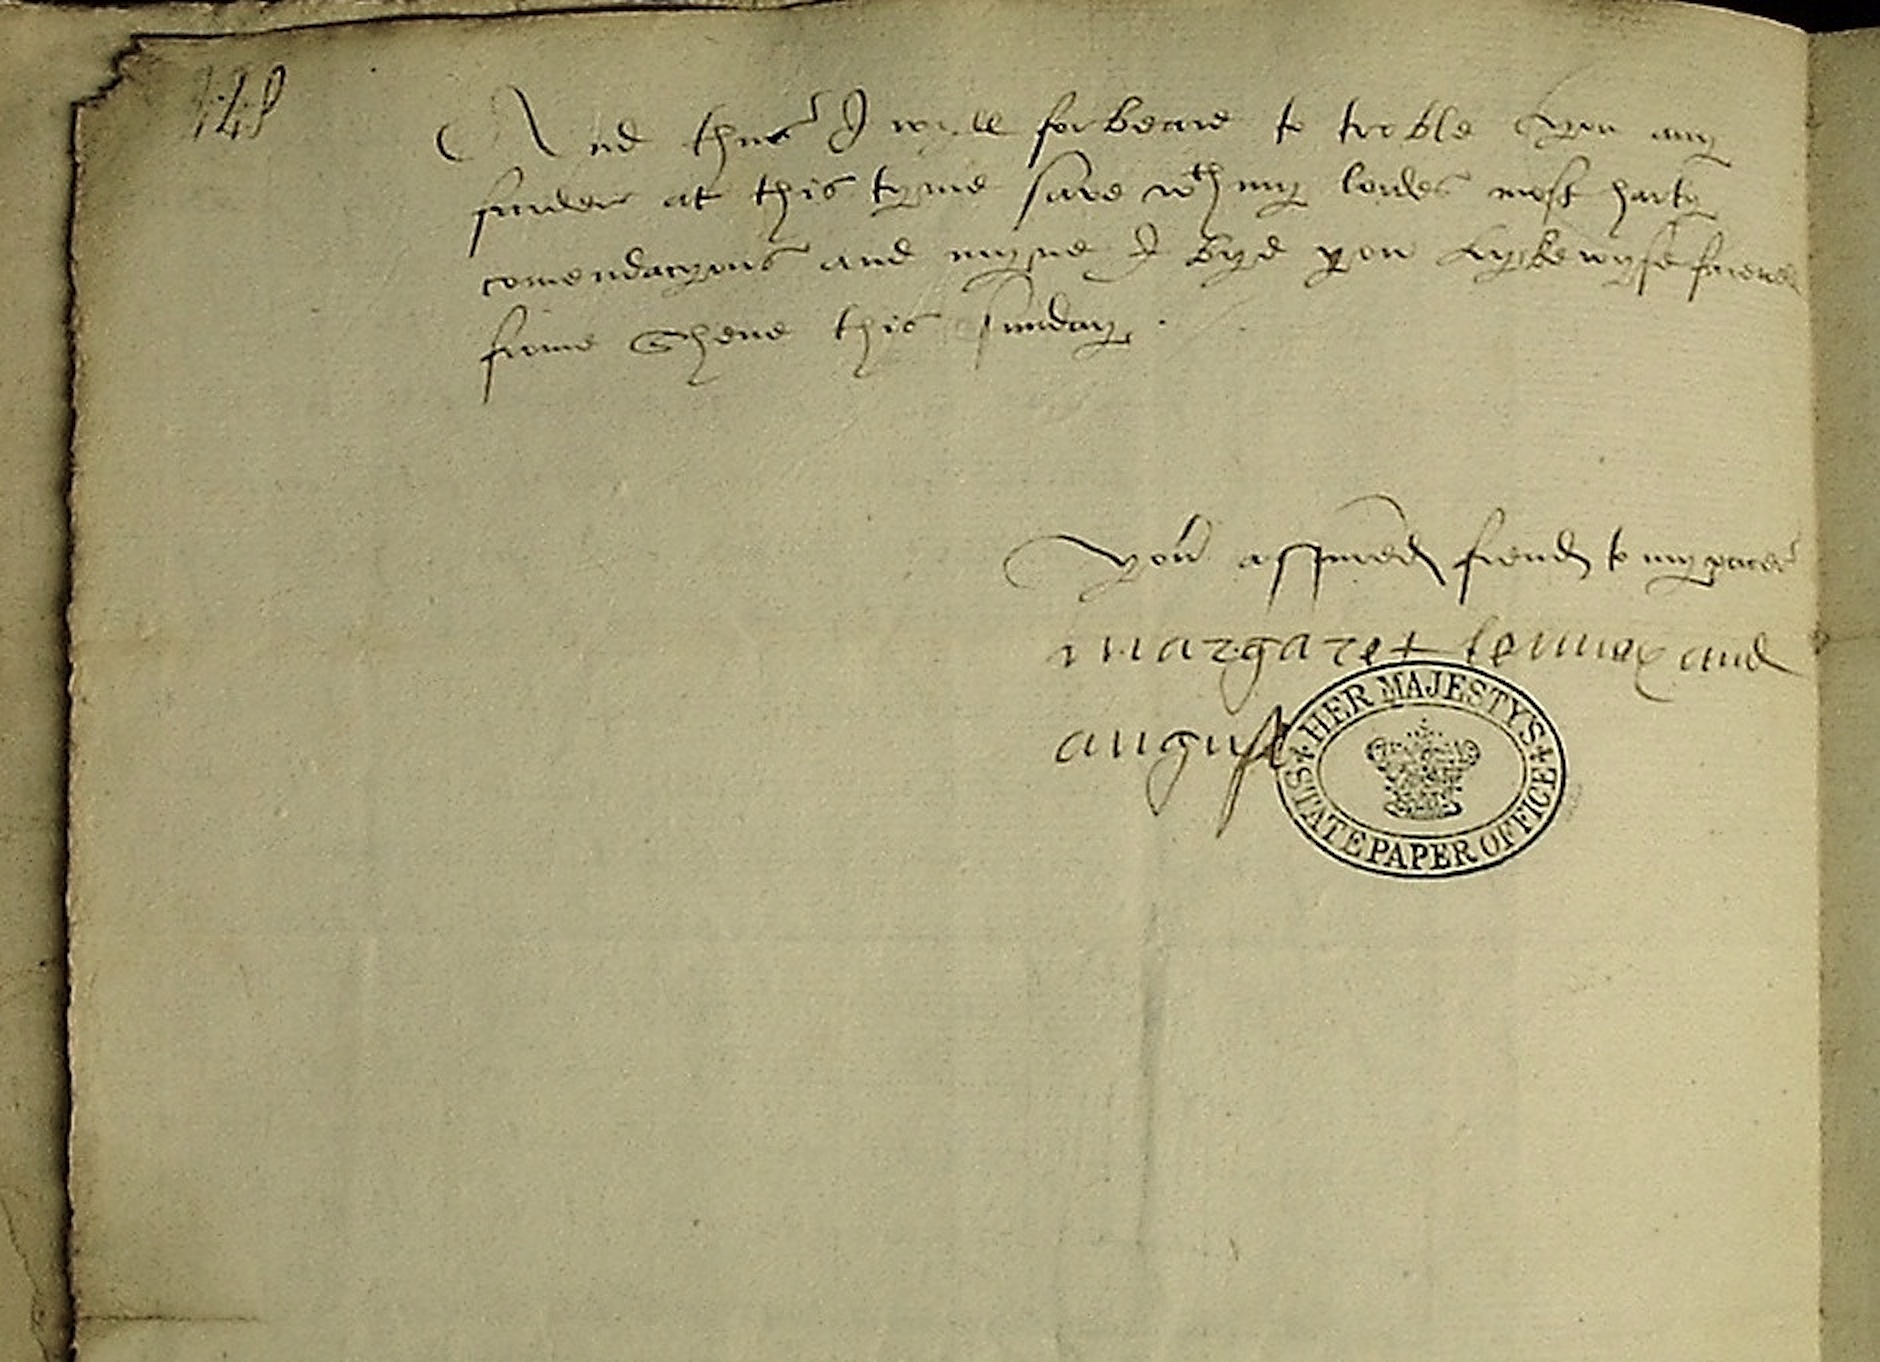 148
And thus I wyll forbeare to troble you any
furder at this tyme save wth my lordes most harty
comendacyons and myne I byd you lykewyse farewell
frome Shene this sunday.
Yor assured frend to my power
margaret lennox and
angus
HER MAJESTY'S STATE PAPER OFFICE